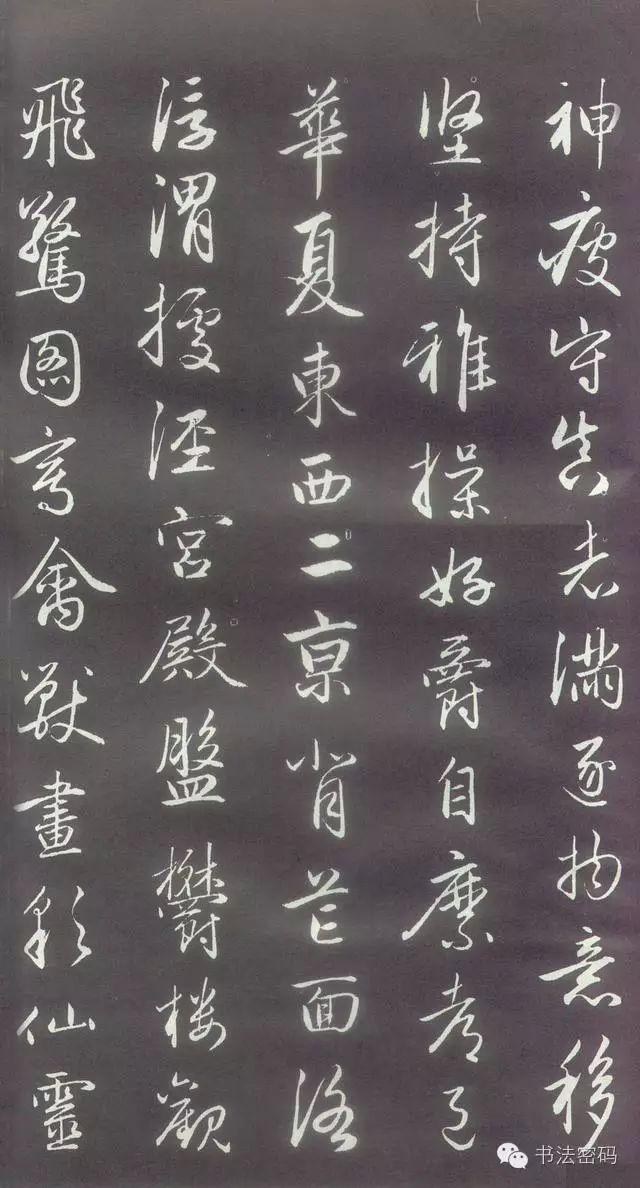 神疲守真志滿逐物意移
坚持雅操好爵自縻都邑
華夏東西二亰背芒面洛
浮渭據涇宮殿盤鬱楼觀
飛驚圖寫禽獸畫彩仙靈
书法密码